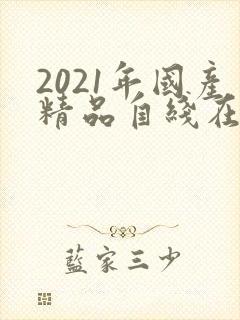 2021年國産
精品自綫在
藍家三少